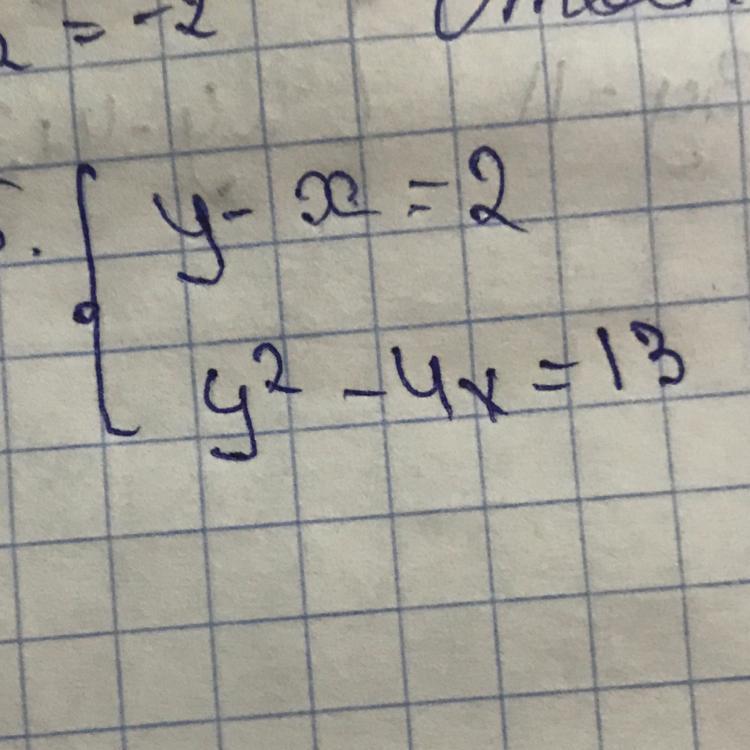 2 = -2
5. { y - x = 2
y² - 4x = 13